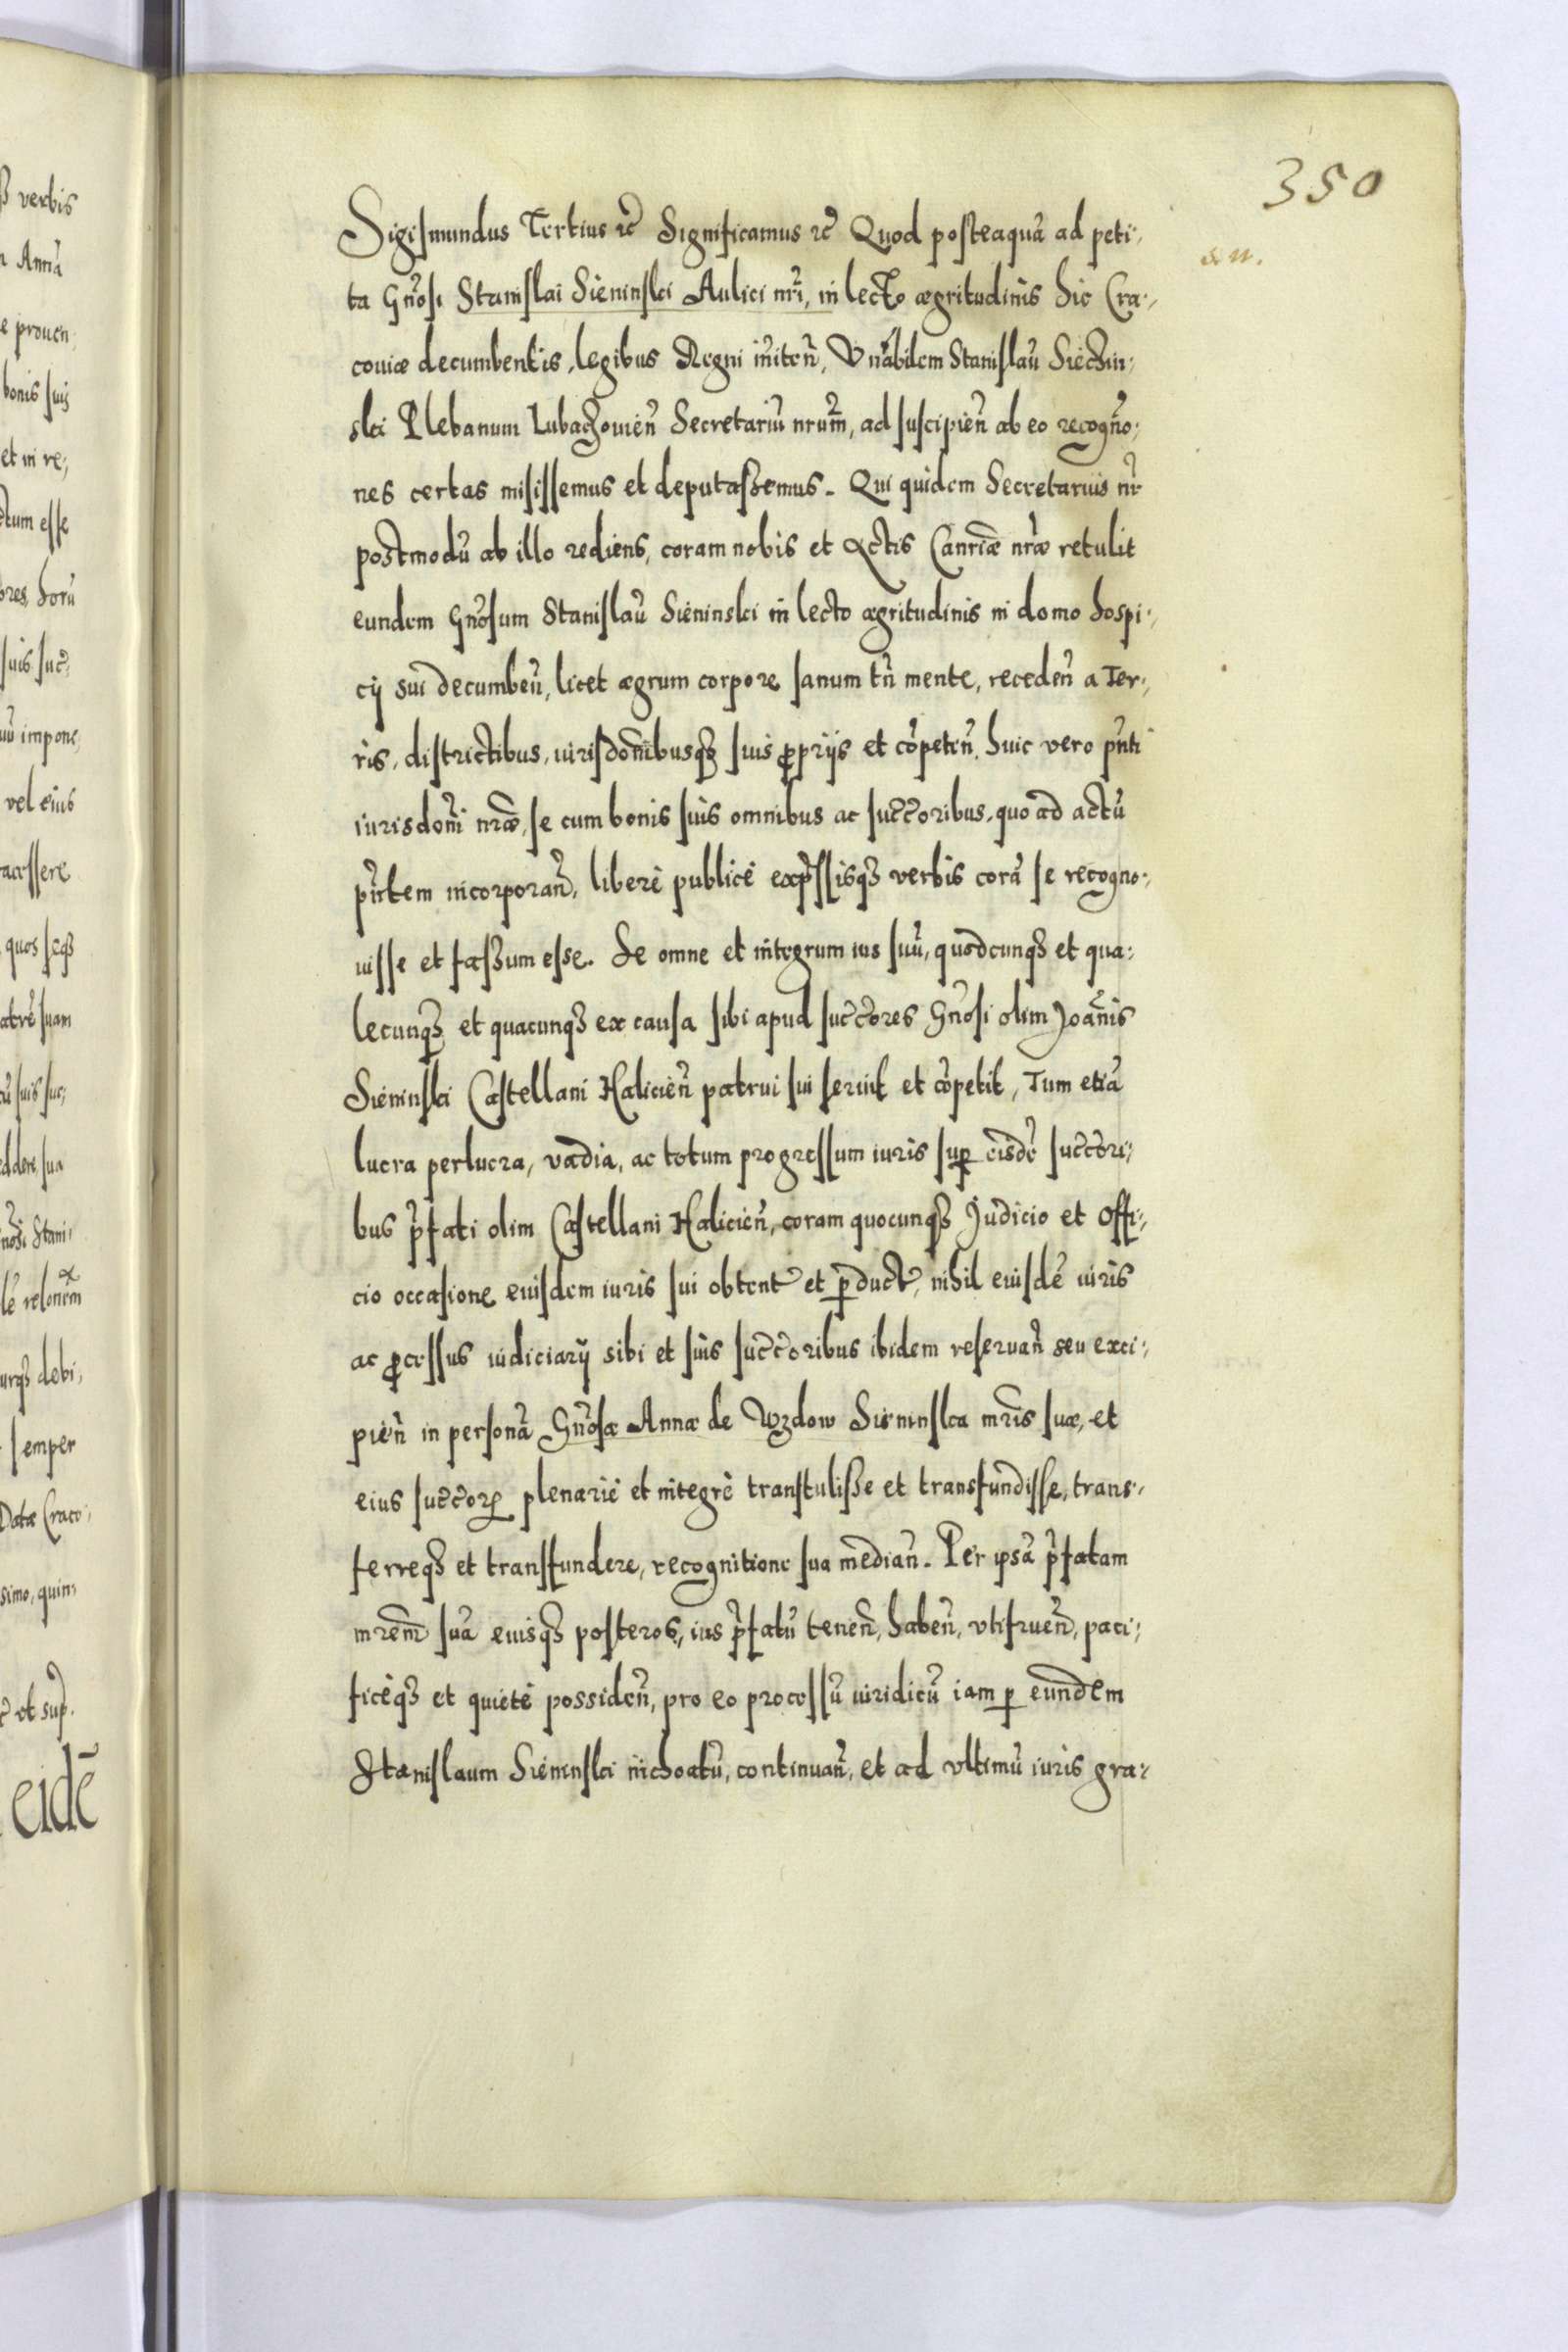 350
Sigismundus Tertius ꝛc̃ Significamus ꝛc̃ Quod posteaquã ad peti,
ta Gñosi Stanislai Sieninski Aulici nr̃i, in lecto ægritudinis hic Cra,
couiæ decumbentis, legibus Regni iñiten̄, Vñabilem Stanislaũ Siechin,
ski Plebanum Lubaczouien̄ Secretariũ nrũm, ad suscipien̄ ab eo recogño,
nes certas misissemus et deputassemus. Qui quidem Secretarius nr̃
postmodũ ab illo rediens, coram nobis et Actis Canr̃iæ nr̃æ retulit
eundem Gñosum Stanislaũ Sieninski in lecto ægritudinis in domo hospi,
cij sui decumben̄, licet ægrum corpore sanum tñ mente, receden̄ a Ter,
ris, districtibus, iurisdoñibusqꝫ suis ꝓprijs et cõpeten̄. huic vero pñti
iurisdoñi nr̃æ, se cum bonis suis omnibus ac succ̃oribus, quo ad actũ
pñtem incorporan̄, liberè publicè exp̃ssisqꝫ verbis corã se recogno,
uisse et fassum esse. Se omne et integrum ius suũ, quodcunqꝫ et qua,
lecunqꝫ et quacunqꝫ ex causa sibi apud succ̃ores Gñosi olim Joãnis
Sieninski Castellani Halicien̄ patrui sui seruit et cõpetit, Tum etiã
lucra perlucra, vadia, ac totum progressum iuris suꝑ eisdẽ succ̃ori,
bus p̃fati olim Castellani Halicien̄, coram quocunqꝫ Judicio et Offi,
cio occasione eiusdem iuris sui obtent̃ et ꝑduct̃, nihil eiusdẽ iuris
ac ꝓcessus iudiciarij sibi et suis succ̃oribus ibidem reseruan̄ seu exci,
pien̄ in personã Gñosæ Annæ de Wzdow Sieninska mr̃is suæ, et
eius succ̃orꝝ plenariè et integrè transtulisse et transfundisse, trans,
ferreqꝫ et transfundere, recognitione sua median̄. Per ipsã p̃fatam
mr̃em suã eiusqꝫ posteros, ius p̃fatũ tenen̄, haben̄, vtifruen̄, paci,
ficèqꝫ et quietè possiden̄, pro eo processũ iuridicũ iam ꝑ eundem
Stanislaum Sieninski inchoatũ, continuan̄, et ad vltimũ iuris gra,